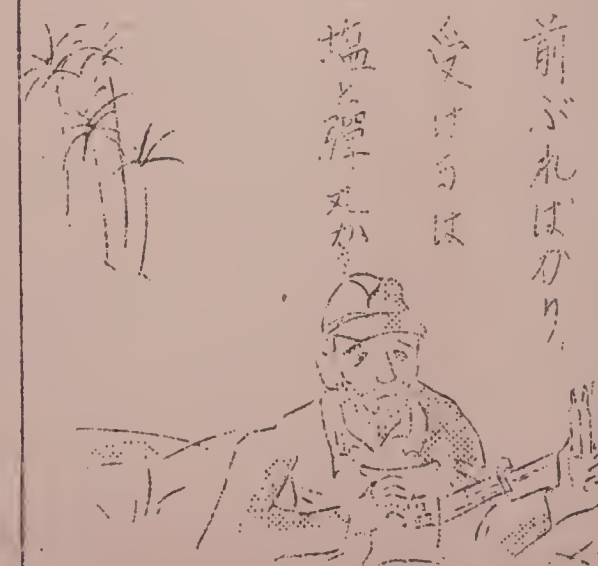 前ぶればかり、
受けるは
塩と弾丸か